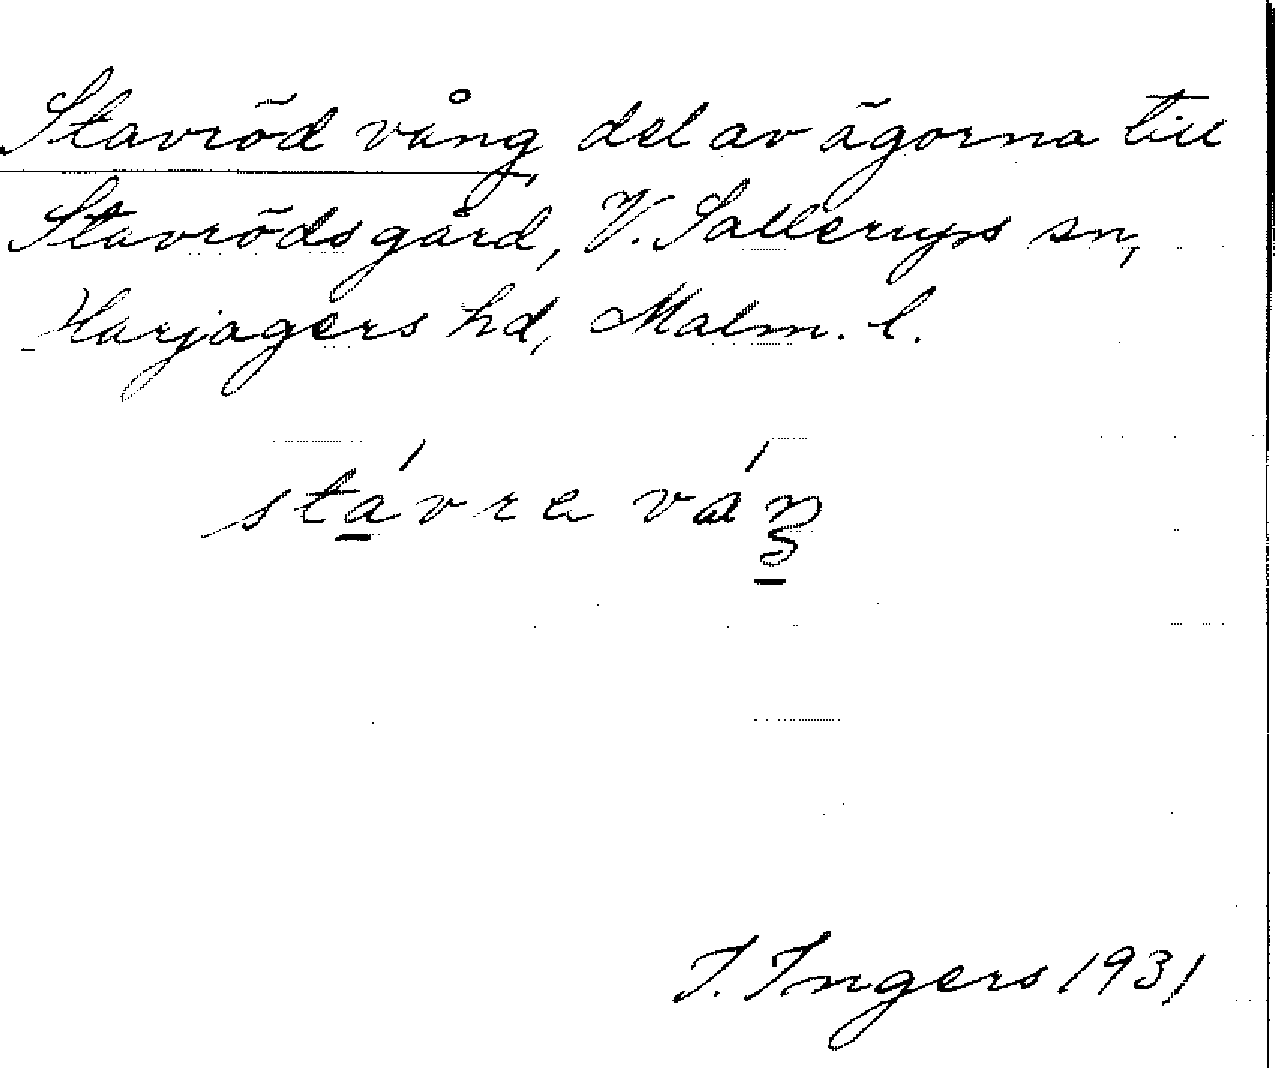 Stavröd vång, del av ägorna till
Stavröds gård, V. Sallerups sn,
Harjagers hd, Malm. l.
stá̱vra váŋ
I. Ingers 1931